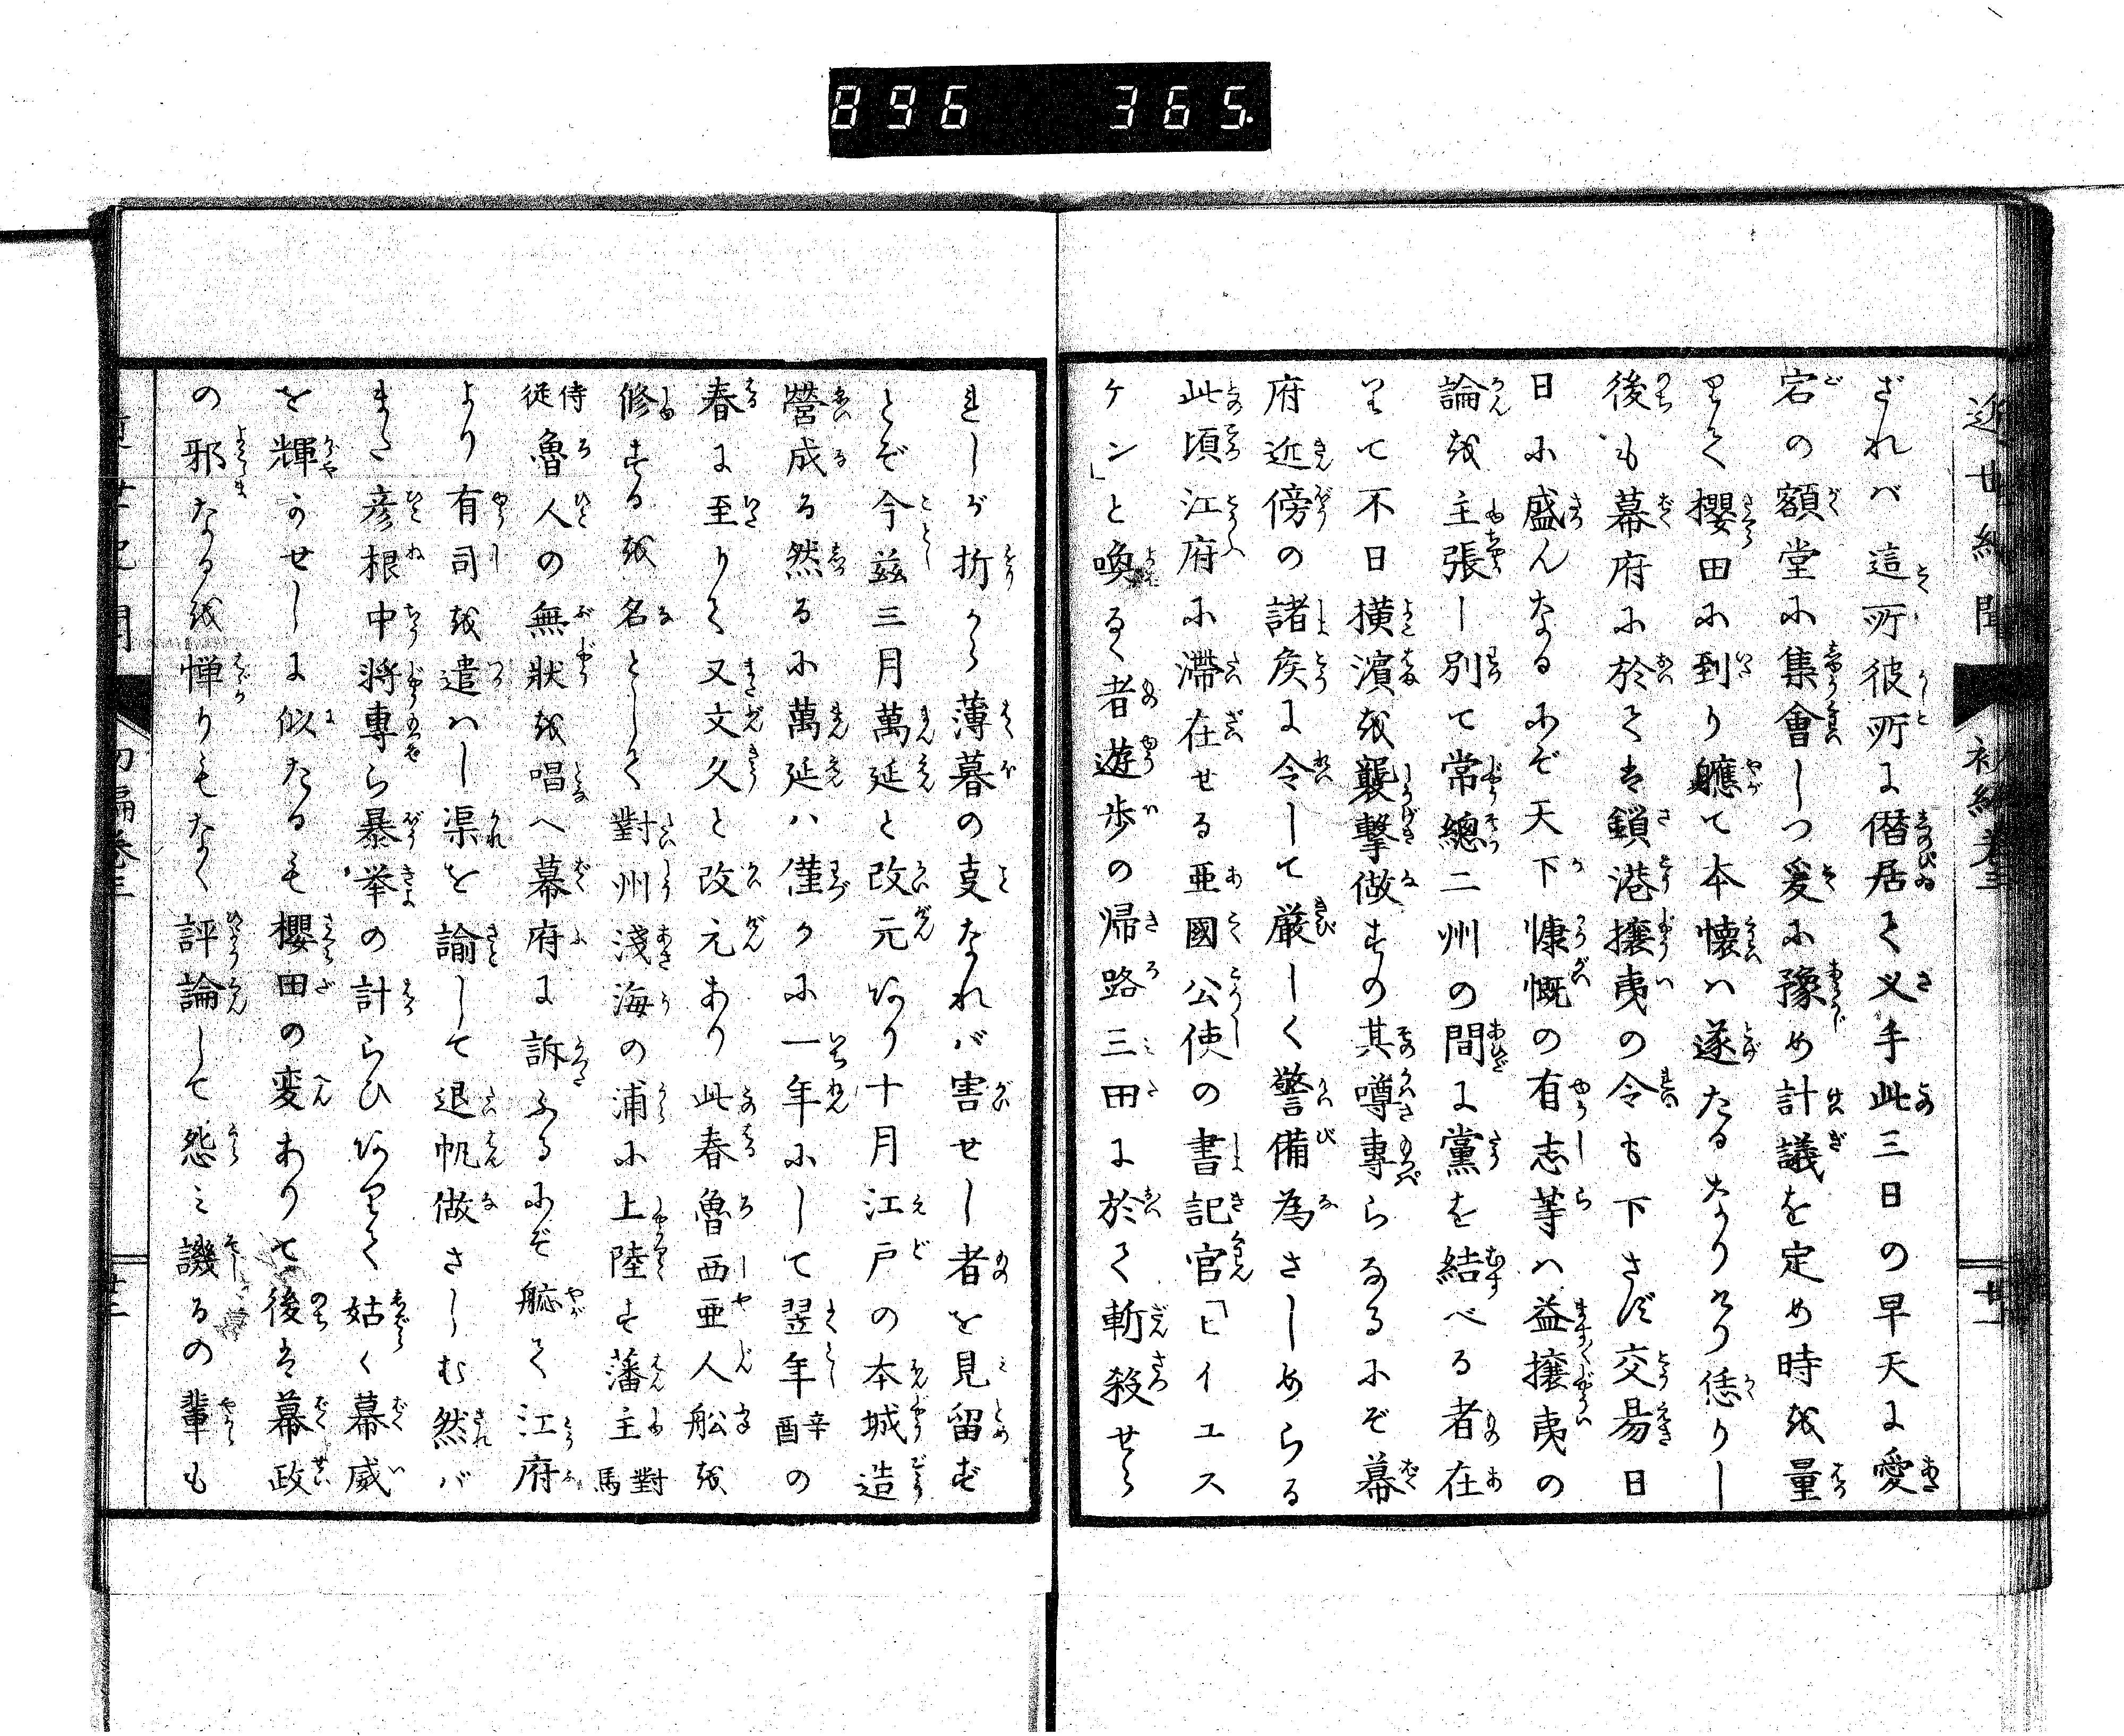 896 365.
近世紀聞 初編卷三 廿一
ざれバ這所彼所に僣居て义手此三日の早天に愛
宕の額堂に集會しつ爰に豫め計議を定め時を量
りて櫻田に到り軈て本懐ハ遂たるなりけり恁りし
後も幕府に於ては鎖港攘夷の令も下さず交易日
日に盛んなるにぞ天下慷慨の有志等ハ益攘夷の
論を主張し別て常總二州の間に黨を結べる者在
りて不日横濵を襲撃做すの其噂専らなるにぞ幕
府近傍の諸矦に令して厳しく警備為さしめらる
此頃江府に滞在せる亜國公使の書記官「ヒイユス
ケン」と喚るゝ者遊歩の帰路三田に於て斬殺せら
れしが折から薄暮の叓なれバ害せし者を見留ず
とぞ今茲三月萬延と改元あり十月江戸の本城造
營成る然るに萬延ハ僅かに一年にして翌年辛酉の
春に至りて又文久と改元あり此春魯西亜人舩を
修するを名として對州淺海の浦に上陸す藩主對馬
侍從魯人の無狀を唱へ幕府に訴ふるにぞ軈て江府
より有司を遣ハし渠を諭して退帆做さしむ然バ
また彦根中将専ら暴挙の計らひありて姑く幕威
を輝かせしに似たるも櫻田の変ありて後は幕政
の邪なるを憚りもなく評論して怨ミ譏るの輩も
近世紀聞 初編卷三 廿二